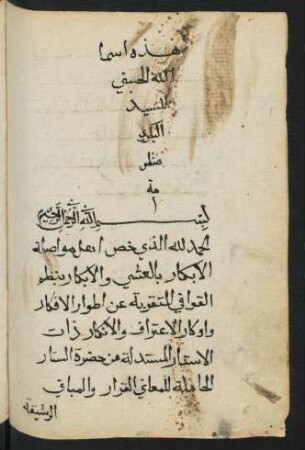 هذه اسما
الله الحسني
للسيد
البكري
منظو
مة
بسم الله الرحمن الرحيم
الحمد لله الذي خص اهل مواصلة
الابكار بالعشي والابكار بنظم
القوافي المتقوية عن اطوار الافكار
واوكار الاعتراف والانكار ذات
الاستار المستدلة من حضرة الستار
الحاملة للمعاني الغزار والمباني
الرشيقة